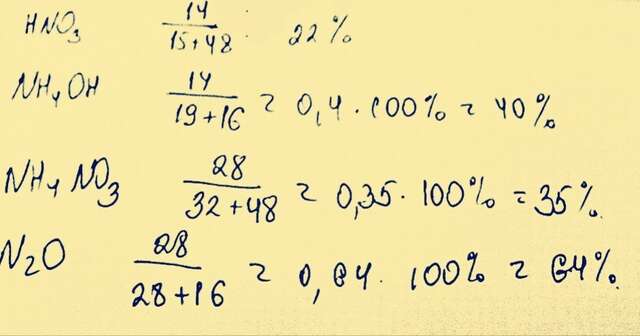 HNO₃ 14/(15+48) : 22%
NH₄OH 14/(19+16) = 0,4 · 100% = 40%
NH₄NO₃ 28/(32+48) = 0,35 · 100% = 35%.
N₂O 28/(28+16) = 0,64 · 100% = 64%.